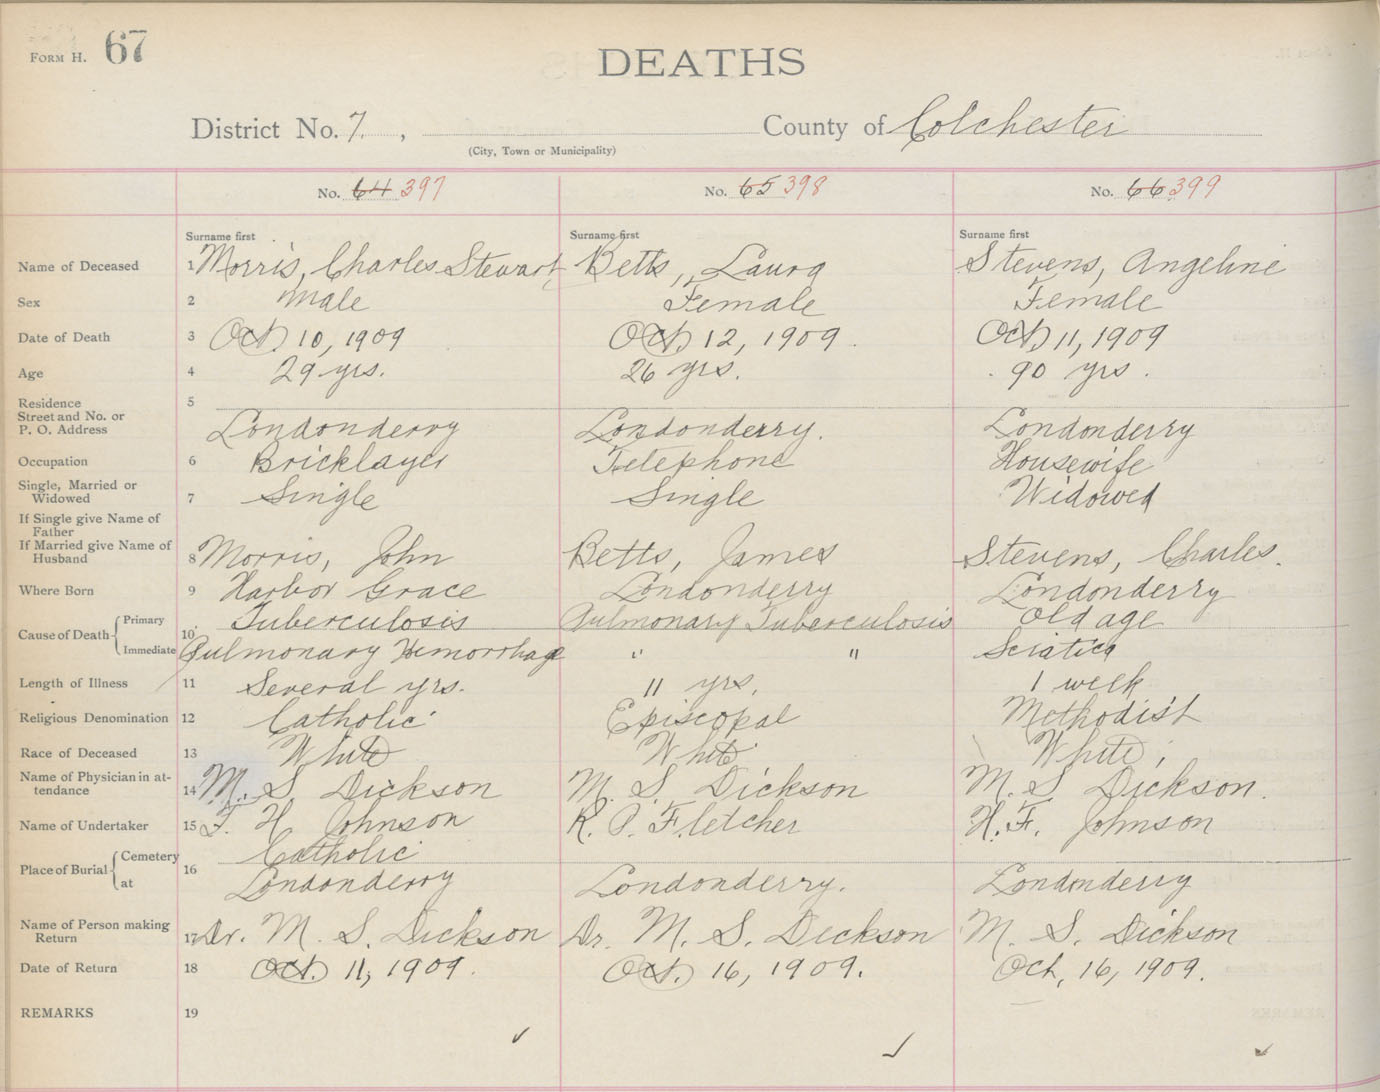 FORM H. 67
DEATHS
District No. 7. , County of Colchester
(City, Town or Municipality)
No. 64 397 No. 65 398 No. 66 399
Surname first Surname first Surname first
Name of Deceased 1 Morris, Charles Stewart Betts, Laura Stevens, Angeline
Sex 2 Male Female Female
Date of Death 3 Oct. 10, 1909 Oct. 12, 1909. Oct. 11, 1909
Age 4 29 yrs. 26 yrs. 90 yrs.
Residence 5
Street and No. or
P. O. Address Londonderry Londonderry. Londonderry
Occupation 6 Bricklayer Telephone Housewife
Single, Married or
Widowed 7 Single Single Widowed
If Single give Name of
Father
If Married give Name of
Husband 8 Morris, John Betts, James Stevens, Charles.
Where Born 9 Harbor Grace Londonderry Londonderry
Cause of Death Primary 10. Tuberculosis Pulmonary Tuberculosis Old age
Immediate Pulmonary Hemorrhage " " Sciatica
Length of Illness 11 Several yrs. 11 yrs. 1 week
Religious Denomination 12 Catholic Episcopal Methodist
Race of Deceased 13 White White White
Name of Physician in at-
tendance 14 M. S. Dickson M. S. Dickson M. S. Dickson.
Name of Undertaker 15 F. H Johnson R. P. Fletcher H. F. Johnson
Place of Burial Cemetery 16 Catholic
at Londonderry Londonderry. Londonderry
Name of Person making
Return 17 Dr. M. S. Dickson Dr. M. S. Dickson M. S. Dickson
Date of Return 18 Oct. 11, 1909. Oct. 16, 1909. Oct, 16, 1909.
REMARKS 19